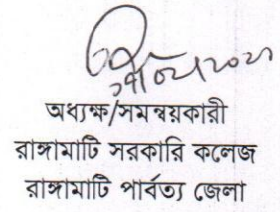 অধ্যক্ষ/সমন্বয়কারী
রাঙ্গামাটি সরকারি কলেজ
রাঙ্গামাটি পার্বত্য জেলা